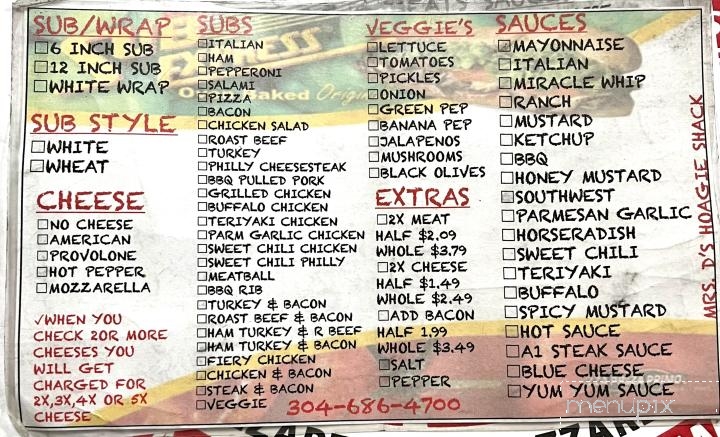 SUB/WRAP
☐6 INCH SUB
☐12 INCH SUB
☐WHITE WRAP
SUB STYLE
☐WHITE
☐WHEAT
CHEESE
☐NO CHEESE
☐AMERICAN
☐PROVOLONE
☐HOT PEPPER
☐MOZZARELLA
✓WHEN YOU
CHECK 2OR MORE
CHEESES YOU
WILL GET
CHARGED FOR
2X,3X,4X OR 5X
CHEESE
SUBS
☐ITALIAN
☐HAM
☐PEPPERONI
☐SALAMI
☐PIZZA
☐BACON
☐CHICKEN SALAD
☐ROAST BEEF
☐TURKEY
☐PHILLY CHEESESTEAK
☐BBQ PULLED PORK
☐GRILLED CHICKEN
☐BUFFALO CHICKEN
☐TERIYAKI CHICKEN
☐PARM GARLIC CHICKEN
☐SWEET CHILI CHICKEN
☐SWEET CHILI PHILLY
☐MEATBALL
☐BBQ RIB
☐TURKEY & BACON
☐ROAST BEEF & BACON
☐HAM TURKEY & R BEEF
☐HAM TURKEY & BACON
☐FIERY CHICKEN
☐CHICKEN & BACON
☐STEAK & BACON
☐VEGGIE
304-686-4700
VEGGIE'S
☐LETTUCE
☐TOMATOES
☐PICKLES
☐ONION
☐GREEN PEP
☐BANANA PEP
☐JALAPENOS
☐MUSHROOMS
☐BLACK OLIVES
EXTRAS
☐2X MEAT
HALF $2.09
WHOLE $3.79
☐2X CHEESE
HALF $1.49
WHOLE $2.49
☐ADD BACON
HALF 1.99
WHOLE $3.49
☐SALT
☐PEPPER
SAUCES
☐MAYONNAISE
☐ITALIAN
☐MIRACLE WHIP
☐RANCH
☐MUSTARD
☐KETCHUP
☐BBQ
☐HONEY MUSTARD
☐SOUTHWEST
☐PARMESAN GARLIC
☐HORSERADISH
☐SWEET CHILI
☐TERIYAKI
☐BUFFALO
☐SPICY MUSTARD
☐HOT SAUCE
☐A1 STEAK SAUCE
☐BLUE CHEESE
☐YUM YUM SAUCE
MRS. D'S HOAGIE SHACK
EXPRESS
Baked Original
menupix